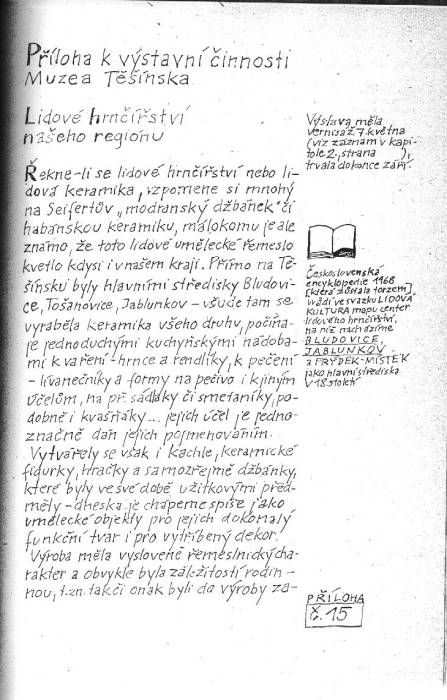 Příloha k výstavní činnosti
Muzea Těšínska
Lidové hrnčířství
našeho regionu
Řekne-li se lidové hrnčířství nebo li-
dová keramika, vzpomene si mnohý
na Seifertův „modranský džbánek" či
habánskou keramiku, málokomu je ale
známo, že toto lidové umělecké řemeslo
kvetlo kdysi i v našem kraji. Přímo na Tě-
šínsku byly hlavními středisky Bludovi-
ce, Tošanovice, Jablunkov - všude tam se
vyráběla keramika všeho druhu, počína-
je jednoduchými kuchyňskými nádoba-
mi k vaření - hrnce a rendlíky, k pečení
- lívanečníky a formy na pečivo i k jiným
účelům, na př. sádláky či smetaníky, po-
dobně i kvasňáky... jejich účel je jedno-
značně dán jejich pojmenováním.
Vytvářely se však i kachle, keramické
figurky, hračky a samozřejmě džbánky,
které byly ve své době užitkovými před-
měty - dneska je chápeme spíše jako
umělecké objekty pro jejich dokonalý
funkční tvar i pro vytříbený dekor.
Výroba měla vysloveně řemeslnický cha-
rakter a obvykle byla záležitostí rodin-
nou, t.zn. tak či onak byli do výroby za-
Výstava měla
vernisáž 7. května
(viz záznam v kapi-
tole 2, strana ),
trvala do konce září.
Československá
encyklopedie 1968
[která zůstala torzem]
uvádí ve svazku LIDOVÁ
KULTURA mapu center
lidového hrnčířství,
na níž nacházíme
BLUDOVICE,
JABLUNKOV
a FRÝDEK-MÍSTEK
jako hlavní střediska
v 18. stol.
PŘÍLOHA
č. 15